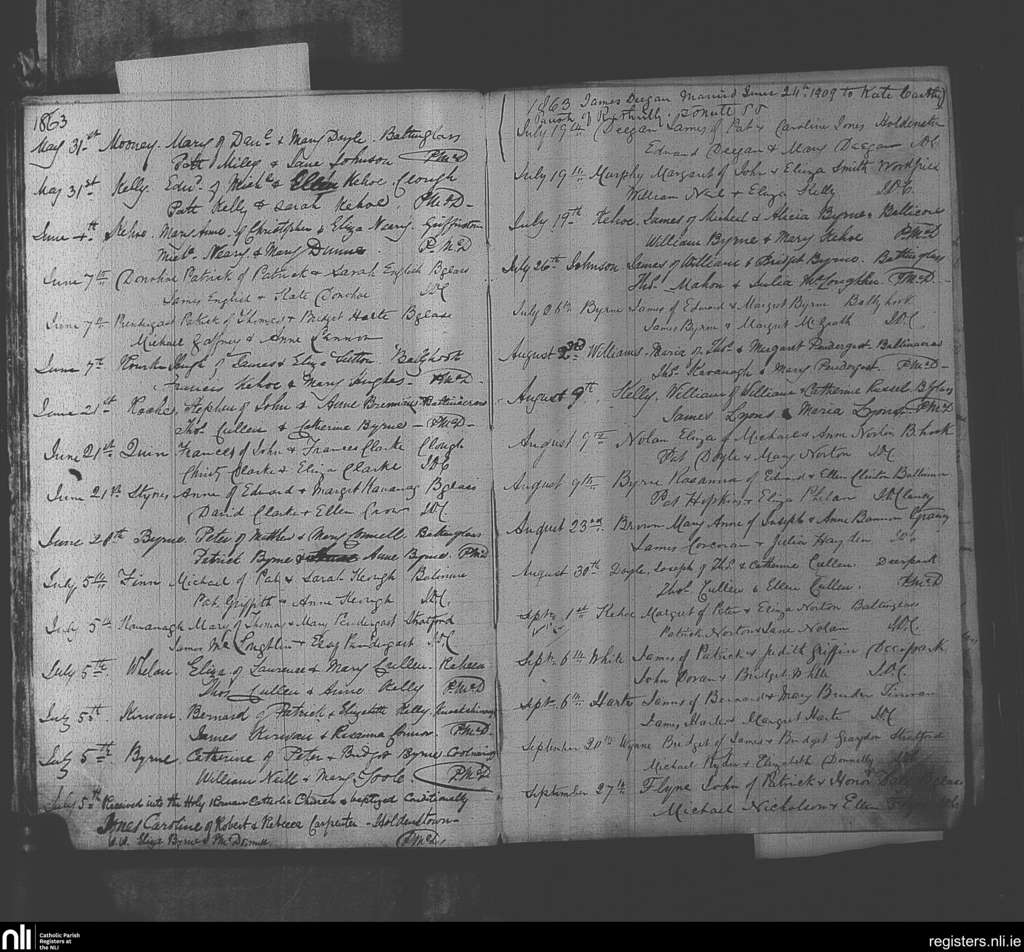 1863
May 31st Mooney. Mary of Danl & Mary Doyle. Baltinglass
Patt Miley & Jane Johnson PMcD
May 31st Kelly. Edwd of Michl & Ellen Kehoe Clough
Patt Kelly & Sarah Kehoe. PMcD
June 4th Kehoe. Mary Anne of Christopher & Eliza Neary. Griffinstown
Michl. Neary & Mary Dunne P. McD
June 7th Donohoe Patrick of Patrick & Sarah English Bglass
James English & Kate Donohoe JDC
June 7th Prendergast Patrick of Thomas & Bridget Harte Bglass
Michael Gaffney & Anne Lennon
June 7th Rourke Hugh of James & Eliz Sutton
Francis Kehoe & Mary Hughes PMcD
June 21st Stephen of John & Anne Brennan Baltinacrois
Thos Cullen & Catherine Byrne PMcD
June 21st Quin Frances of John & Frances Clarke Clough
Christy Clarke & Eliza Clarke JDC
June 21st Anne of Edward & Margret Bglass
David Clarke & Ellen JDC
June 28th Byrne. Peter of Mathew & Mary Connell. Baltinglass
Patrick Byrne & Anne Byrne. PMcD
July 5th Finn Michael of Pat & Sarah Keough
Pat. Griffith & Anne Keough JDC.
July 5th Kavanagh Mary of Thomas & Mary Pendergast Stratford
James McLoughlin & Eliza Pendergast JDC
July 5th Whelan. Eliza of Laurence & Mary Cullen.
Thos Cullen & Anne Kelly PMcD
July 5th Kirwan. Bernard of Patrick & Elizabeth Kelly.
James Kirwan & Rosanna Connor. PMcD
July 5th Byrne Catherine of Peter & Bridget Byrne
William Neill & Mary Toole. PMcD
July 5th Received into the Holy Roman Catholic Church & baptized Conditionally
Jones Caroline of Robert & Rebecca Carpenter - Holdenstown
Eliza Byrne & PMcDonnell PMcD
1863 James Deegan Married June 24th 1909 to Kate Carthy
Parish of Rathvilly,
July 19th Deegan James of Pat & Caroline Jones Holdenstn
Edward Deegan & Mary Deegan JDC
July 19th Murphy Margaret of John & Eliza Smith
William Neil & Eliza Kelly JDC.
July 19th Kehoe. James of Michael & Alicia Byrne.
William Byrne & Mary Kehoe PMcD
July 26th Johnson James of William & Bridget Byrne. Baltinglass
Thos. Mahon & Julia McLoughlin. PMcD
July 26th Byrne James of Edward & Margret Byrne Ballyhook
James Byrne & Margret McGrath JDC.
August 2nd Williams. Maria of Thos. & Margaret Pendergast
Thos. Kavanagh & Mary Pendergast. PMcD
August 9th. Kelly. William of William & Catherine Russel Bglass
James Lyons & Maria Lyons PMcD
August 9th Nolan Eliza of Michael & Anne Norton B.hook
Pat Doyle & Mary Norton JDC
August 9th Byrne Rosanna of Edward & Ellen Clinton
Pat Hopkins & Eliza Phelan JDClancy
August 23rd Brown Mary Anne of Joseph & Anne Bannon
James Corcoran & Julia Hayden
August 30th Doyle. Joseph of Thos. & Catherine Cullen. Deerpark
Thos Cullen & Ellen Cullen. PMcD
Sept. 1st Kehoe Margret of Peter & Eliza Norton Baltinglass
Patrick Norton & Jane Nolan JDC.
Sept. 6th White James of Patrick & Judith Griffin Deerpark.
John Doran & Bridget White JDC.
Sept 6th Harte James of Bernard & Mary
James Harte & Margret Harte JDC
September 20th Wynne Bridget of James & Bridget Graydon Stratford
Michael Ryder & Elizabeth Donnelly
September 27th Flyne John of Patrick & Honor
Michael Nicholson & Ellen
nli
Catholic Parish
Registers at
the NLI
registers.nli.ie